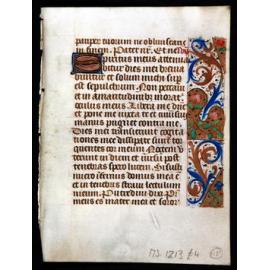 pauperum tuorum ne obliuiscaris
in finem. Pater nr. Et ne
Spiritus meus attenu
abitur dies mei breuia
buntur et solum michi sup
est sepulcrum. Non peccaui
et in amaritudinibus morat
oculus meus. Libera me dne
et pone me iuxta te et cuiusuis
manus pugnet contra me.
Dies mei transierunt cogita
tiones mee dissipate sunt tor
quentes cor meum. Noctem v
terunt in diem et rursu post
tenebras spero lucem. Si susti
nuero infernus domus mea e
et in tenebris straui lectulum
meum. Putredini dixi pater
meus es mater mea et soror